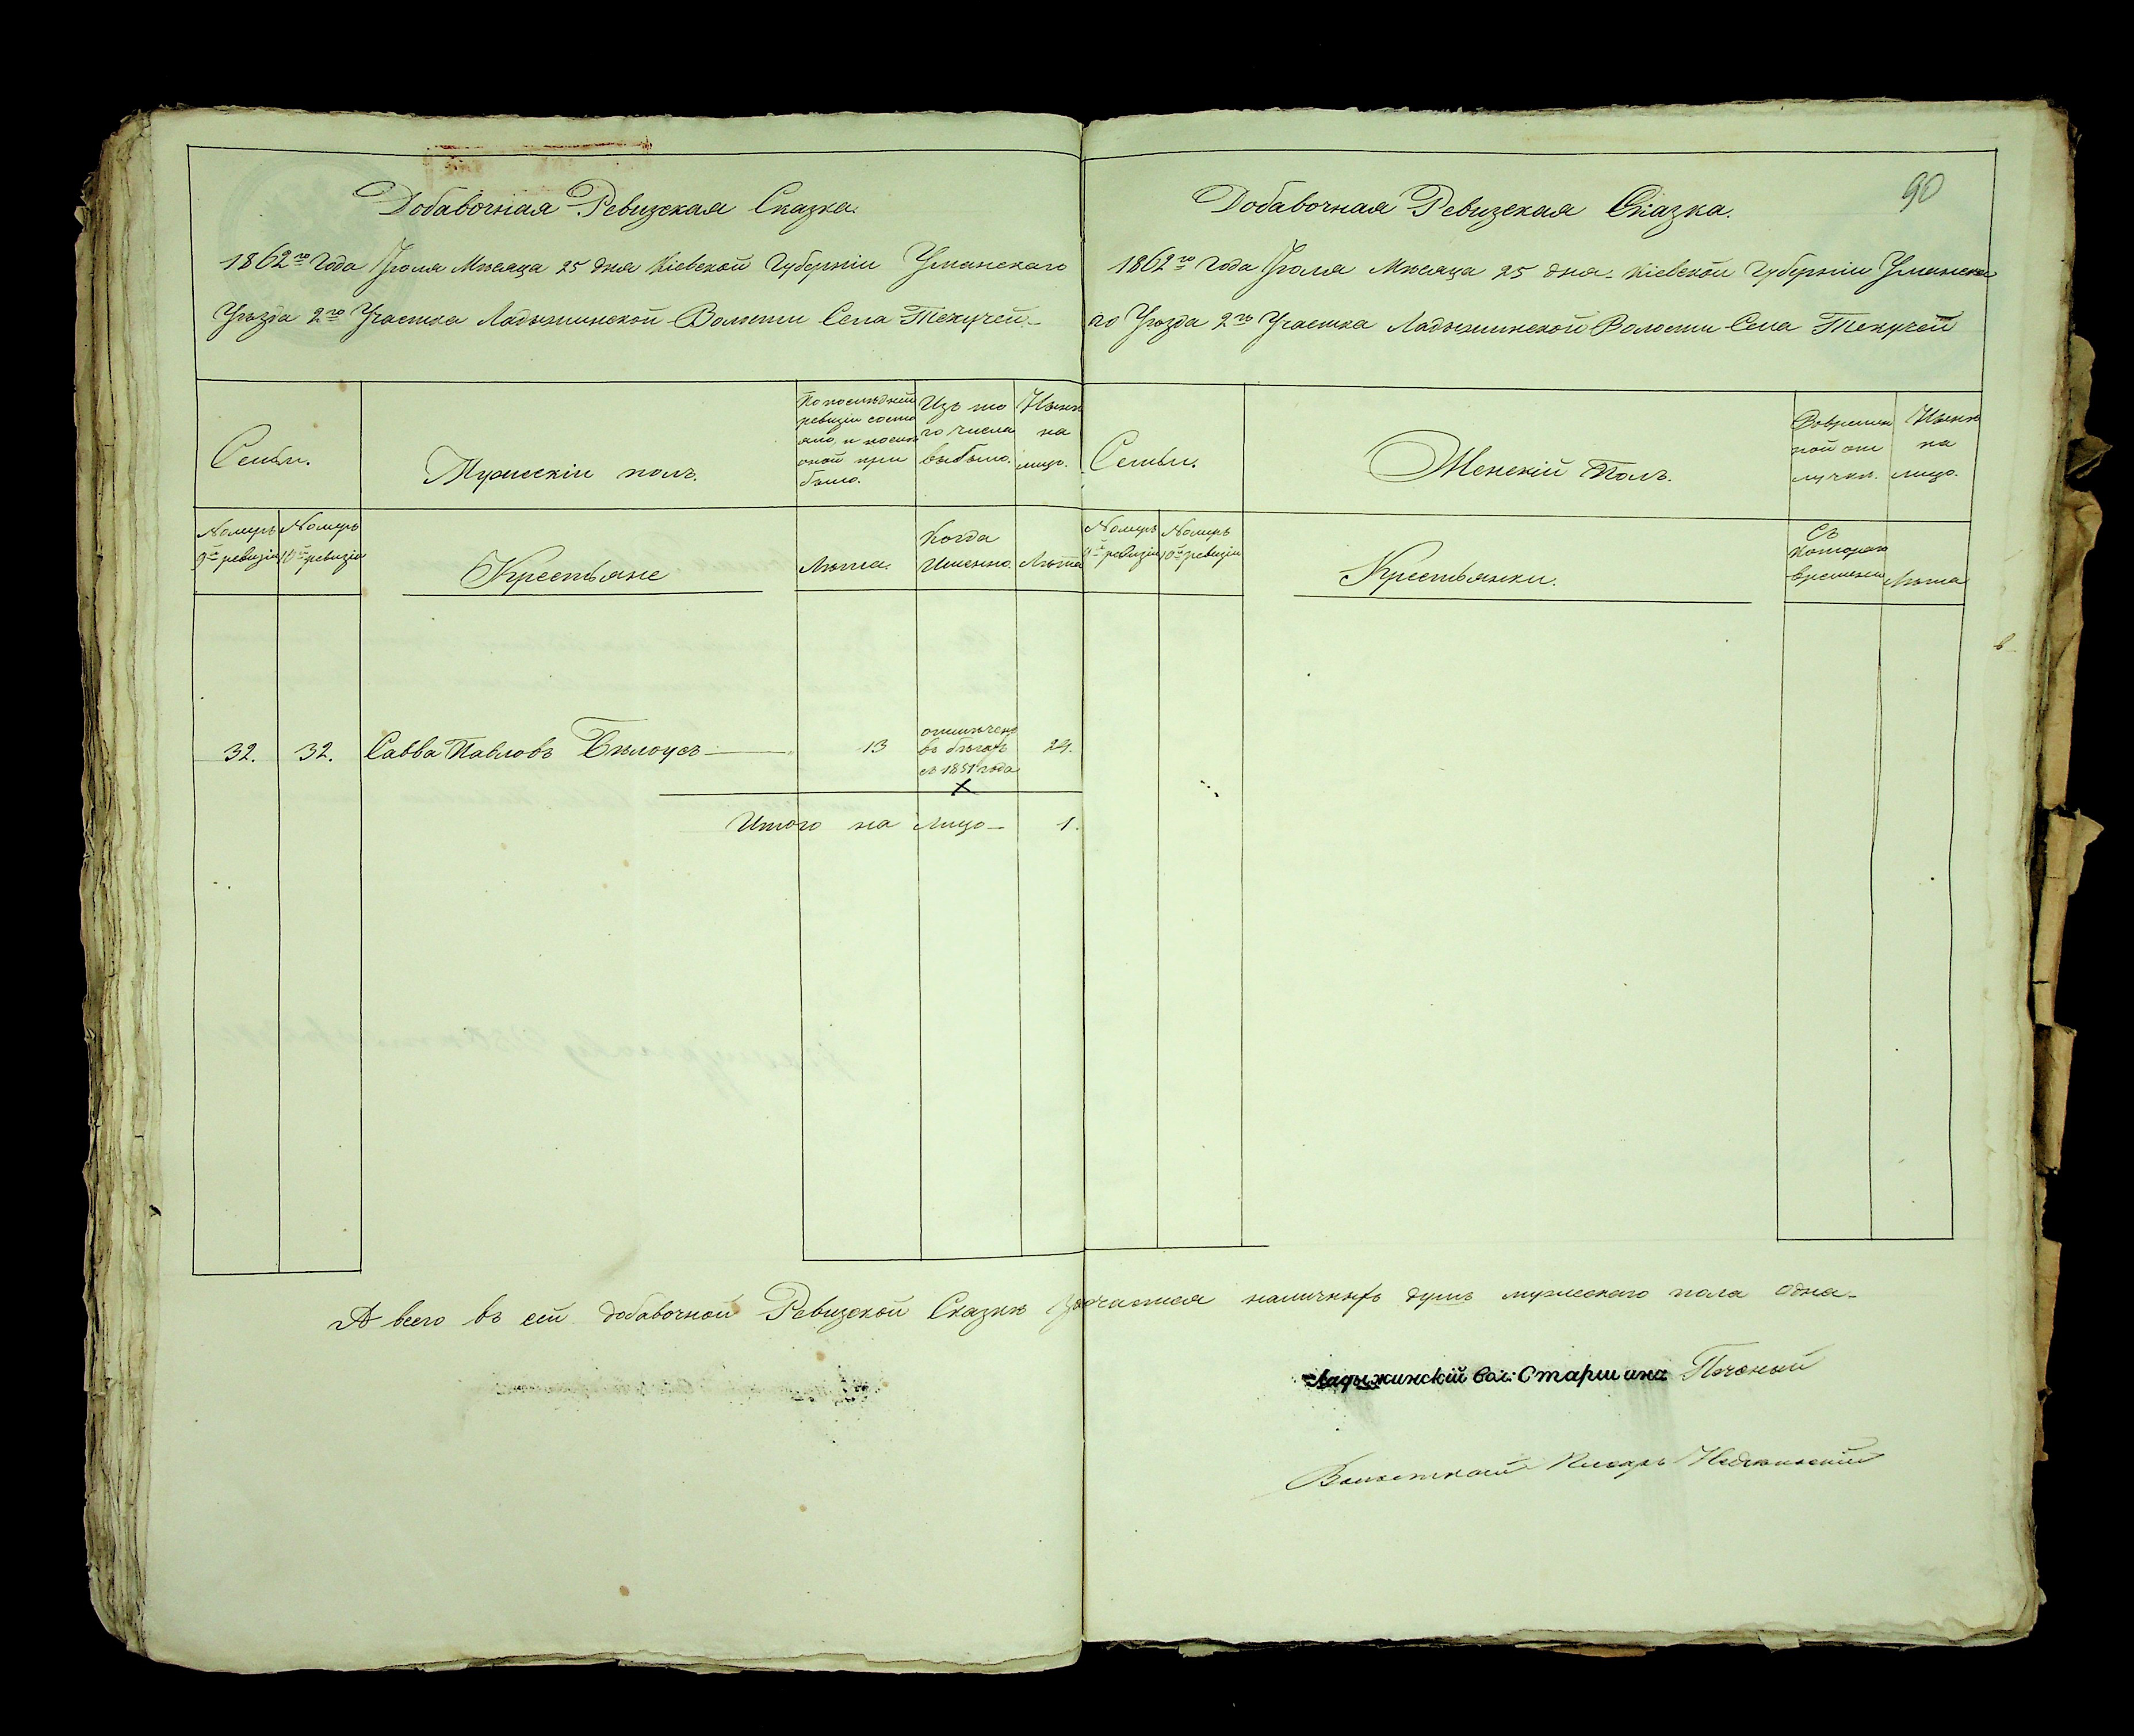 Добавочная Ревизская Сказка.
1862го Года Іюля Мѣсяца 25 дня Кіевской Губерніи Уманскаго
Уѣзда 2го Участка Ладыжинской Волости Села Текучей
Семьи.
Мужескій полъ.
По послѣдней ревизіи состояло, и послѣ оной прибыло.
Изъ того числа выбыло.
Нынѣ на лицо.
Номеръ 9й ревизіи
Номеръ 10й ревизіи
Крестьяне
Лѣта.
Когда Именно.
Лѣта
32. 32. Савва Павловъ Бѣлоусъ 13 отмѣченъ въ бѣгахъ съ 1851 года 24.
Итого на лицо 1.
90
Добавочная Ревизская Сказка.
1862го Года Іюля Мѣсяца 25 дня Кіевской Губерніи Уманска
го Уѣзда 2го Участка Ладыжинской Волости Села Текучей
Семьи.
Женскій Полъ.
Во временной отлучкѣ.
Нынѣ на лицо.
Номеръ 9й ревизіи
Номеръ 10й ревизіи
Крестьянки.
Съ котораго времени
Лѣта
А всего въ сей добавочной Ревизской Сказкѣ наличныхъ душъ мужескаго пола одна
Ладыжинскій Вол: Старшина
Волостной Писарь